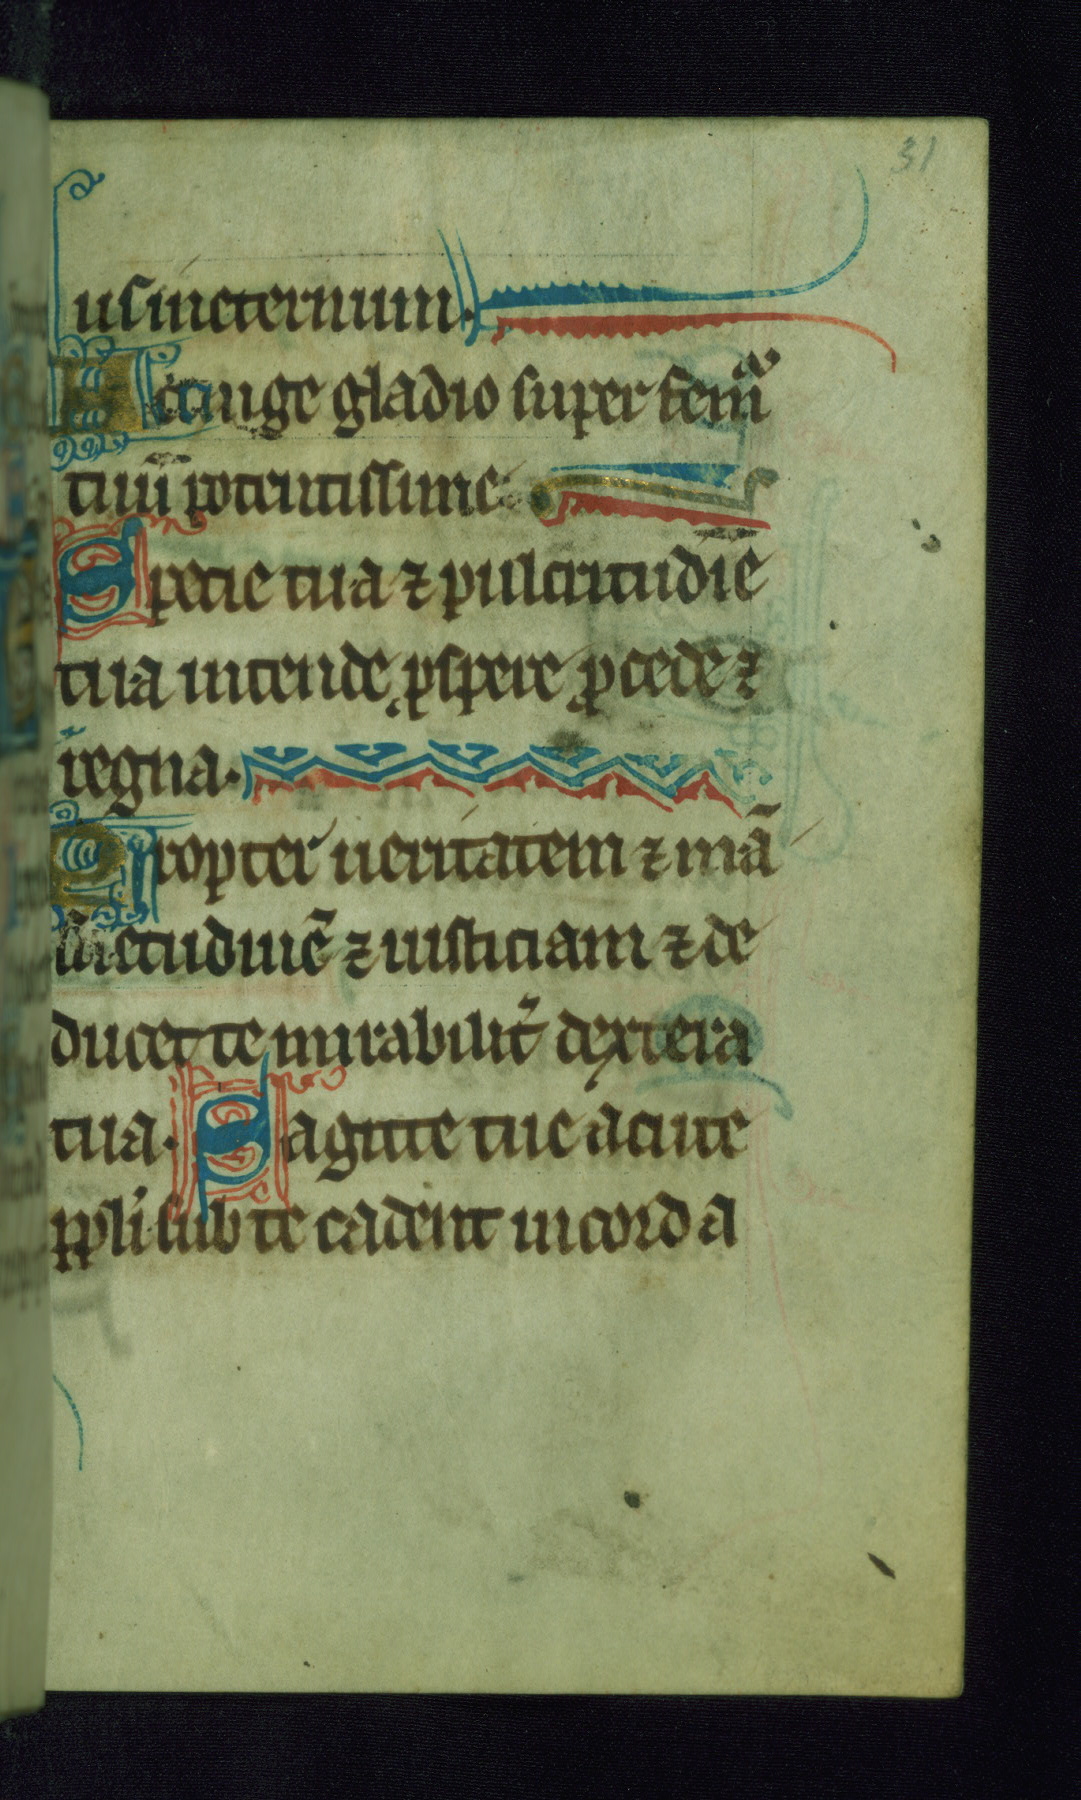 31
us in eternum.
Accinge gladio super femur
tuū potentissime.
Specie tua ⁊ pulcritudīe
tua intende ꝓspere ꝓcede ⁊
regna.
Propter ueritatem ⁊ mā
suetudinē ⁊ iusticiam ⁊ de
ducet te mirabilit̄ dextera
tua. Sagitte tue acute
ppli sub te cadent in corda